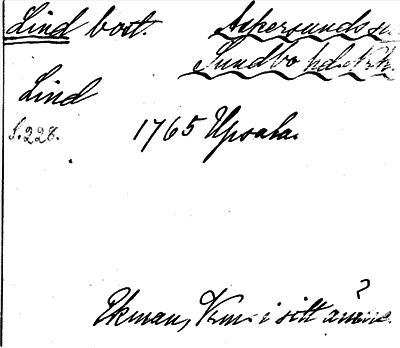 Lind bort. Askersunds sn.
Sundbo hd. Nrk.
Lind
s. 228. 1765 Upsala.
?
Ekman, Verml. i sitt ämne.